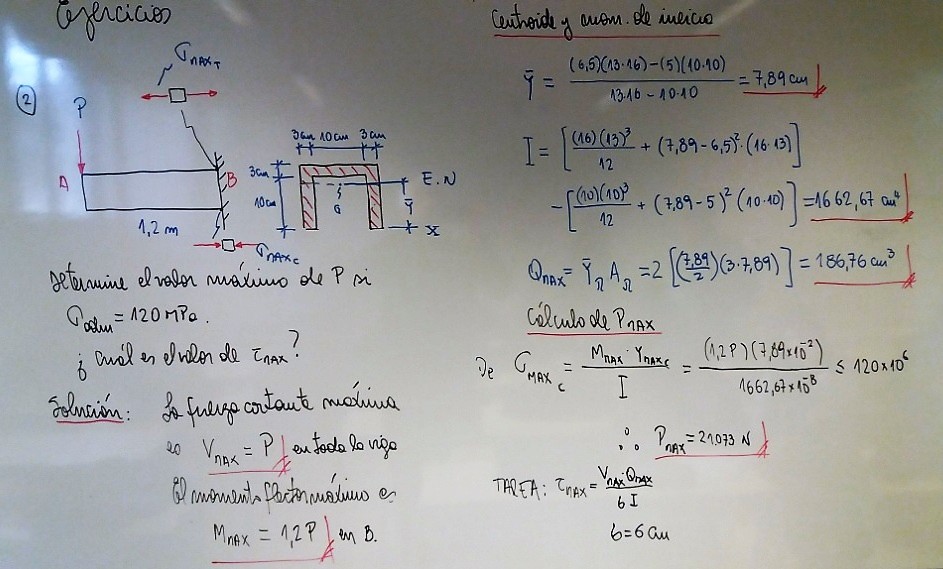 Ejercicios
②
P
σ_MAX_T
A
B
1,2 m
σ_MAX_C
3cm 10cm 3cm
3cm
10cm
G
E.N
ȳ
x
Determine el valor máximo de P si
σ_adm = 120 MPa.
¿ Cuál es el valor de τ_MAX?
Solución: La fuerza cortante máxima
es V_MAX = P en toda la viga
El momento flector máximo es
M_MAX = 1,2 P en B.
Centroide y mom. de inercia
Ȳ = (6,5)(13·16) - (5)(10·10) / 13·16 - 10·10 = 7,89 cm
I = [(16)(13)³/12 + (7,89 - 6,5)²·(16·13)]
- [(10)(10)³/12 + (7,89 - 5)² (10·10)] = 1662,67 cm⁴
Q_MAX = Ȳ_Ω A_Ω = 2 [(7,89/2)(3·7,89)] = 186,76 cm³
Cálculo de P_MAX
De σ_MAX_C = M_MAX · Y_MAX_C / I = (1,2 P)(7,89×10⁻²) / 1662,67×10⁻⁸ ≤ 120×10⁶
∴ P_MAX = 21.073 N
TAREA: τ_MAX = V_MAX·Q_MAX / b I
b = 6 cm